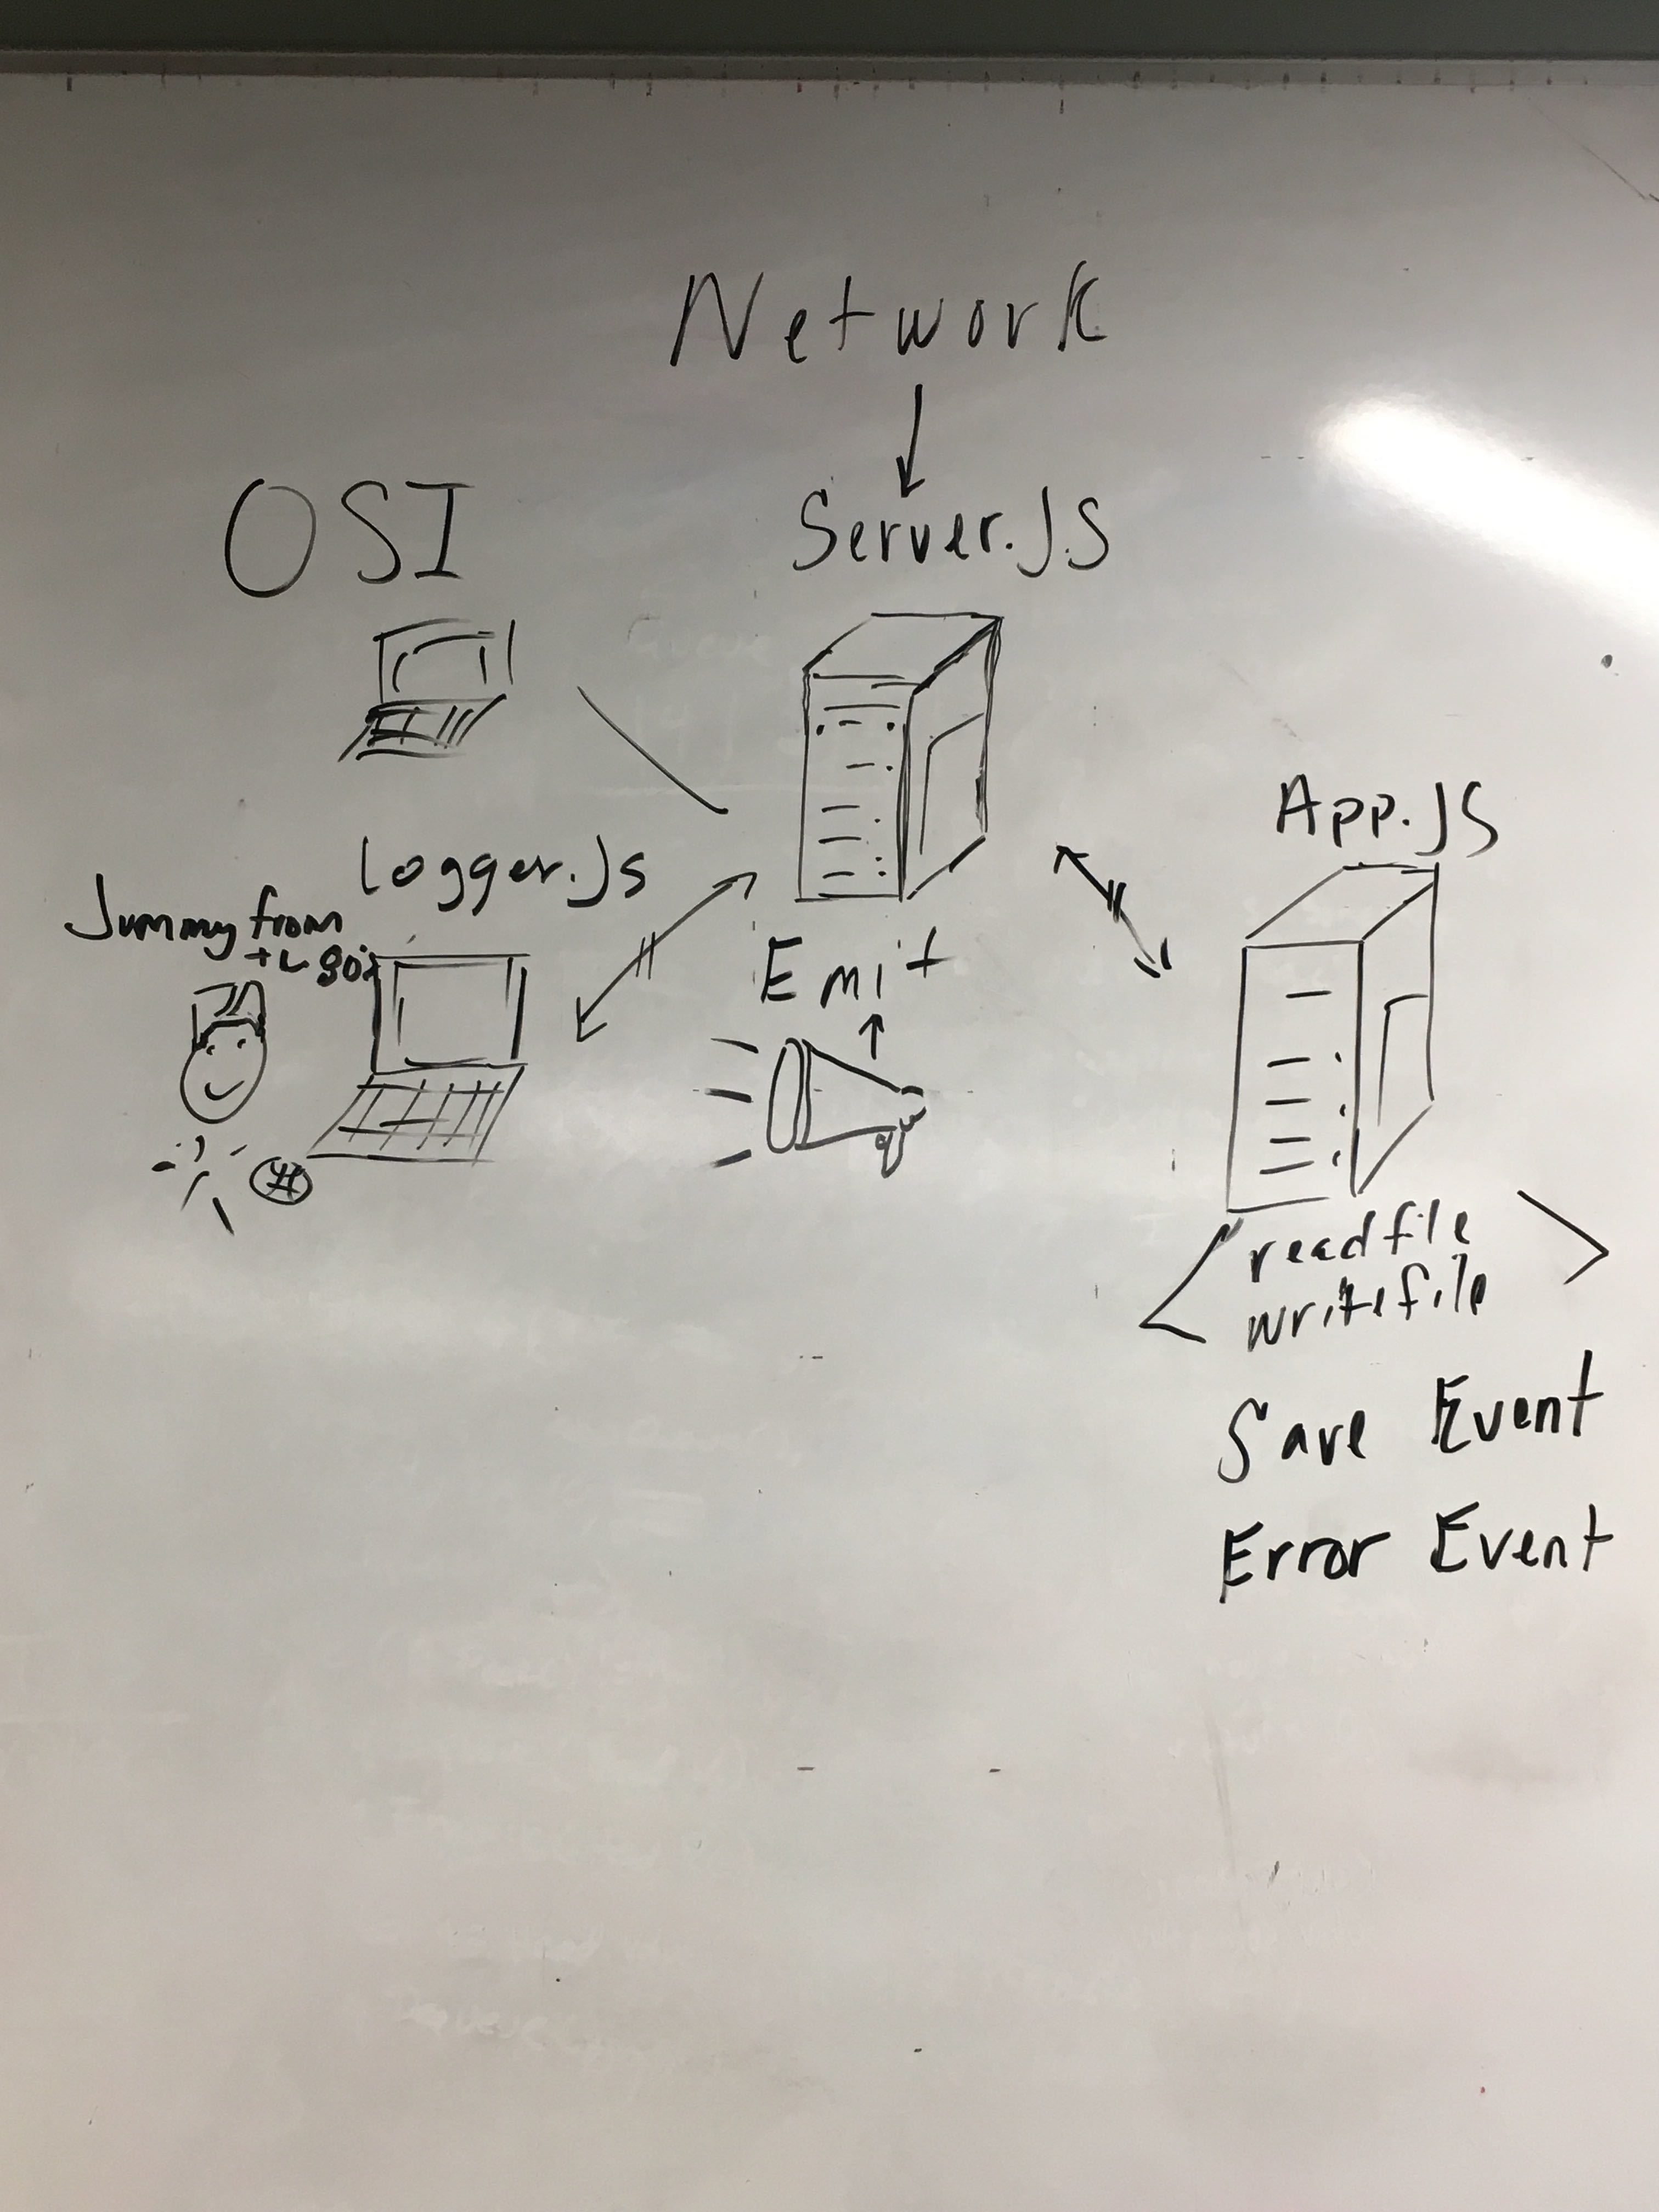 Network
OSI
Server.JS
App.JS
logger.Js
Jummy from
Emit
readfile
writefile
Save Event
Error Event